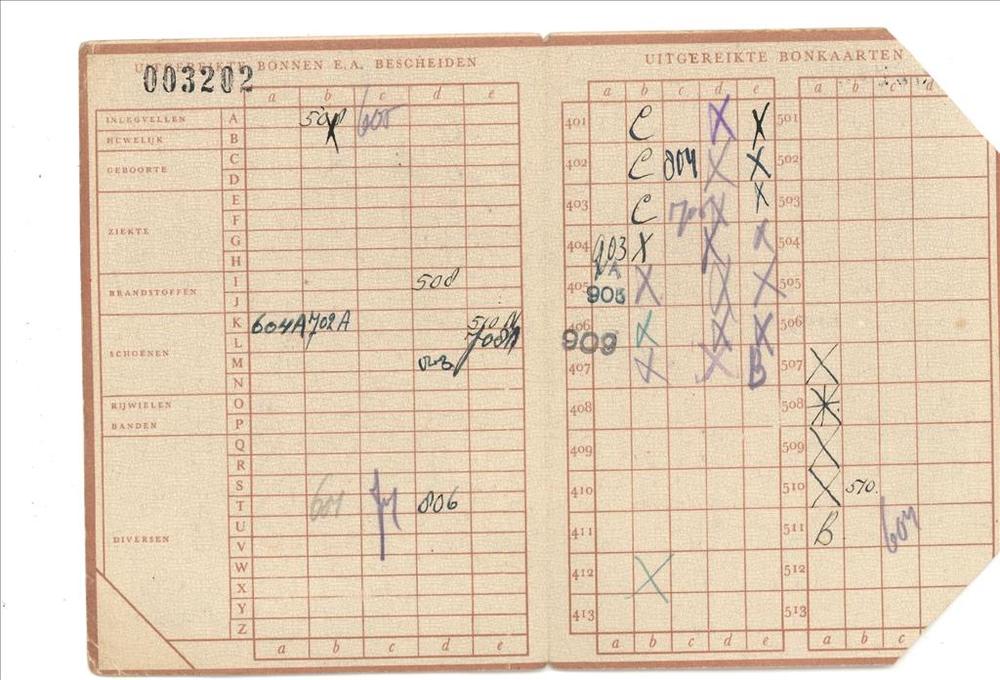 UITGEREIKTE BONNEN E.A. BESCHEIDEN
003202
a b c d e
INLEGVELLEN A 500 600
HUWELIJK B X
GEBOORTE C
D
E
F
ZIEKTE
G
H
I 508
BRANDSTOFFEN
J
K 604A 702A
L 708A
SCHOENEN
M
N
RIJWIELEN O
BANDEN P
Q
R
S
T 601 806
U
DIVERSEN
V
W
X
Y
Z
a b c d e
UITGEREIKTE BONKAARTEN
a b c d e a b c d
401 C X X 501
402 C 804 X X 502
403 C X X 503
404 903 X X X 504
405 X X X 505
905
406 X X X 506
909
407 X X B 507 X
408 508
409 509 X
410 510 X 510.
411 511 B 604
412 X 512
413 513
a b c d e a b c